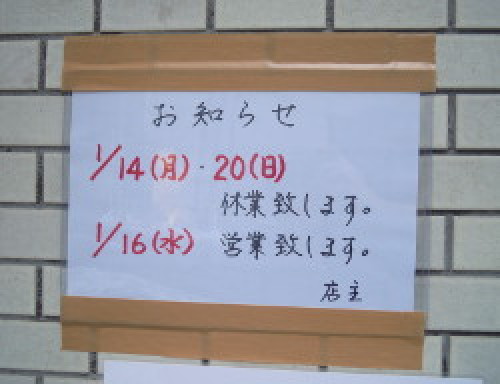 お知らせ
1/14(月)・20(日)
休業致します。
1/16(水) 営業致します。
店主